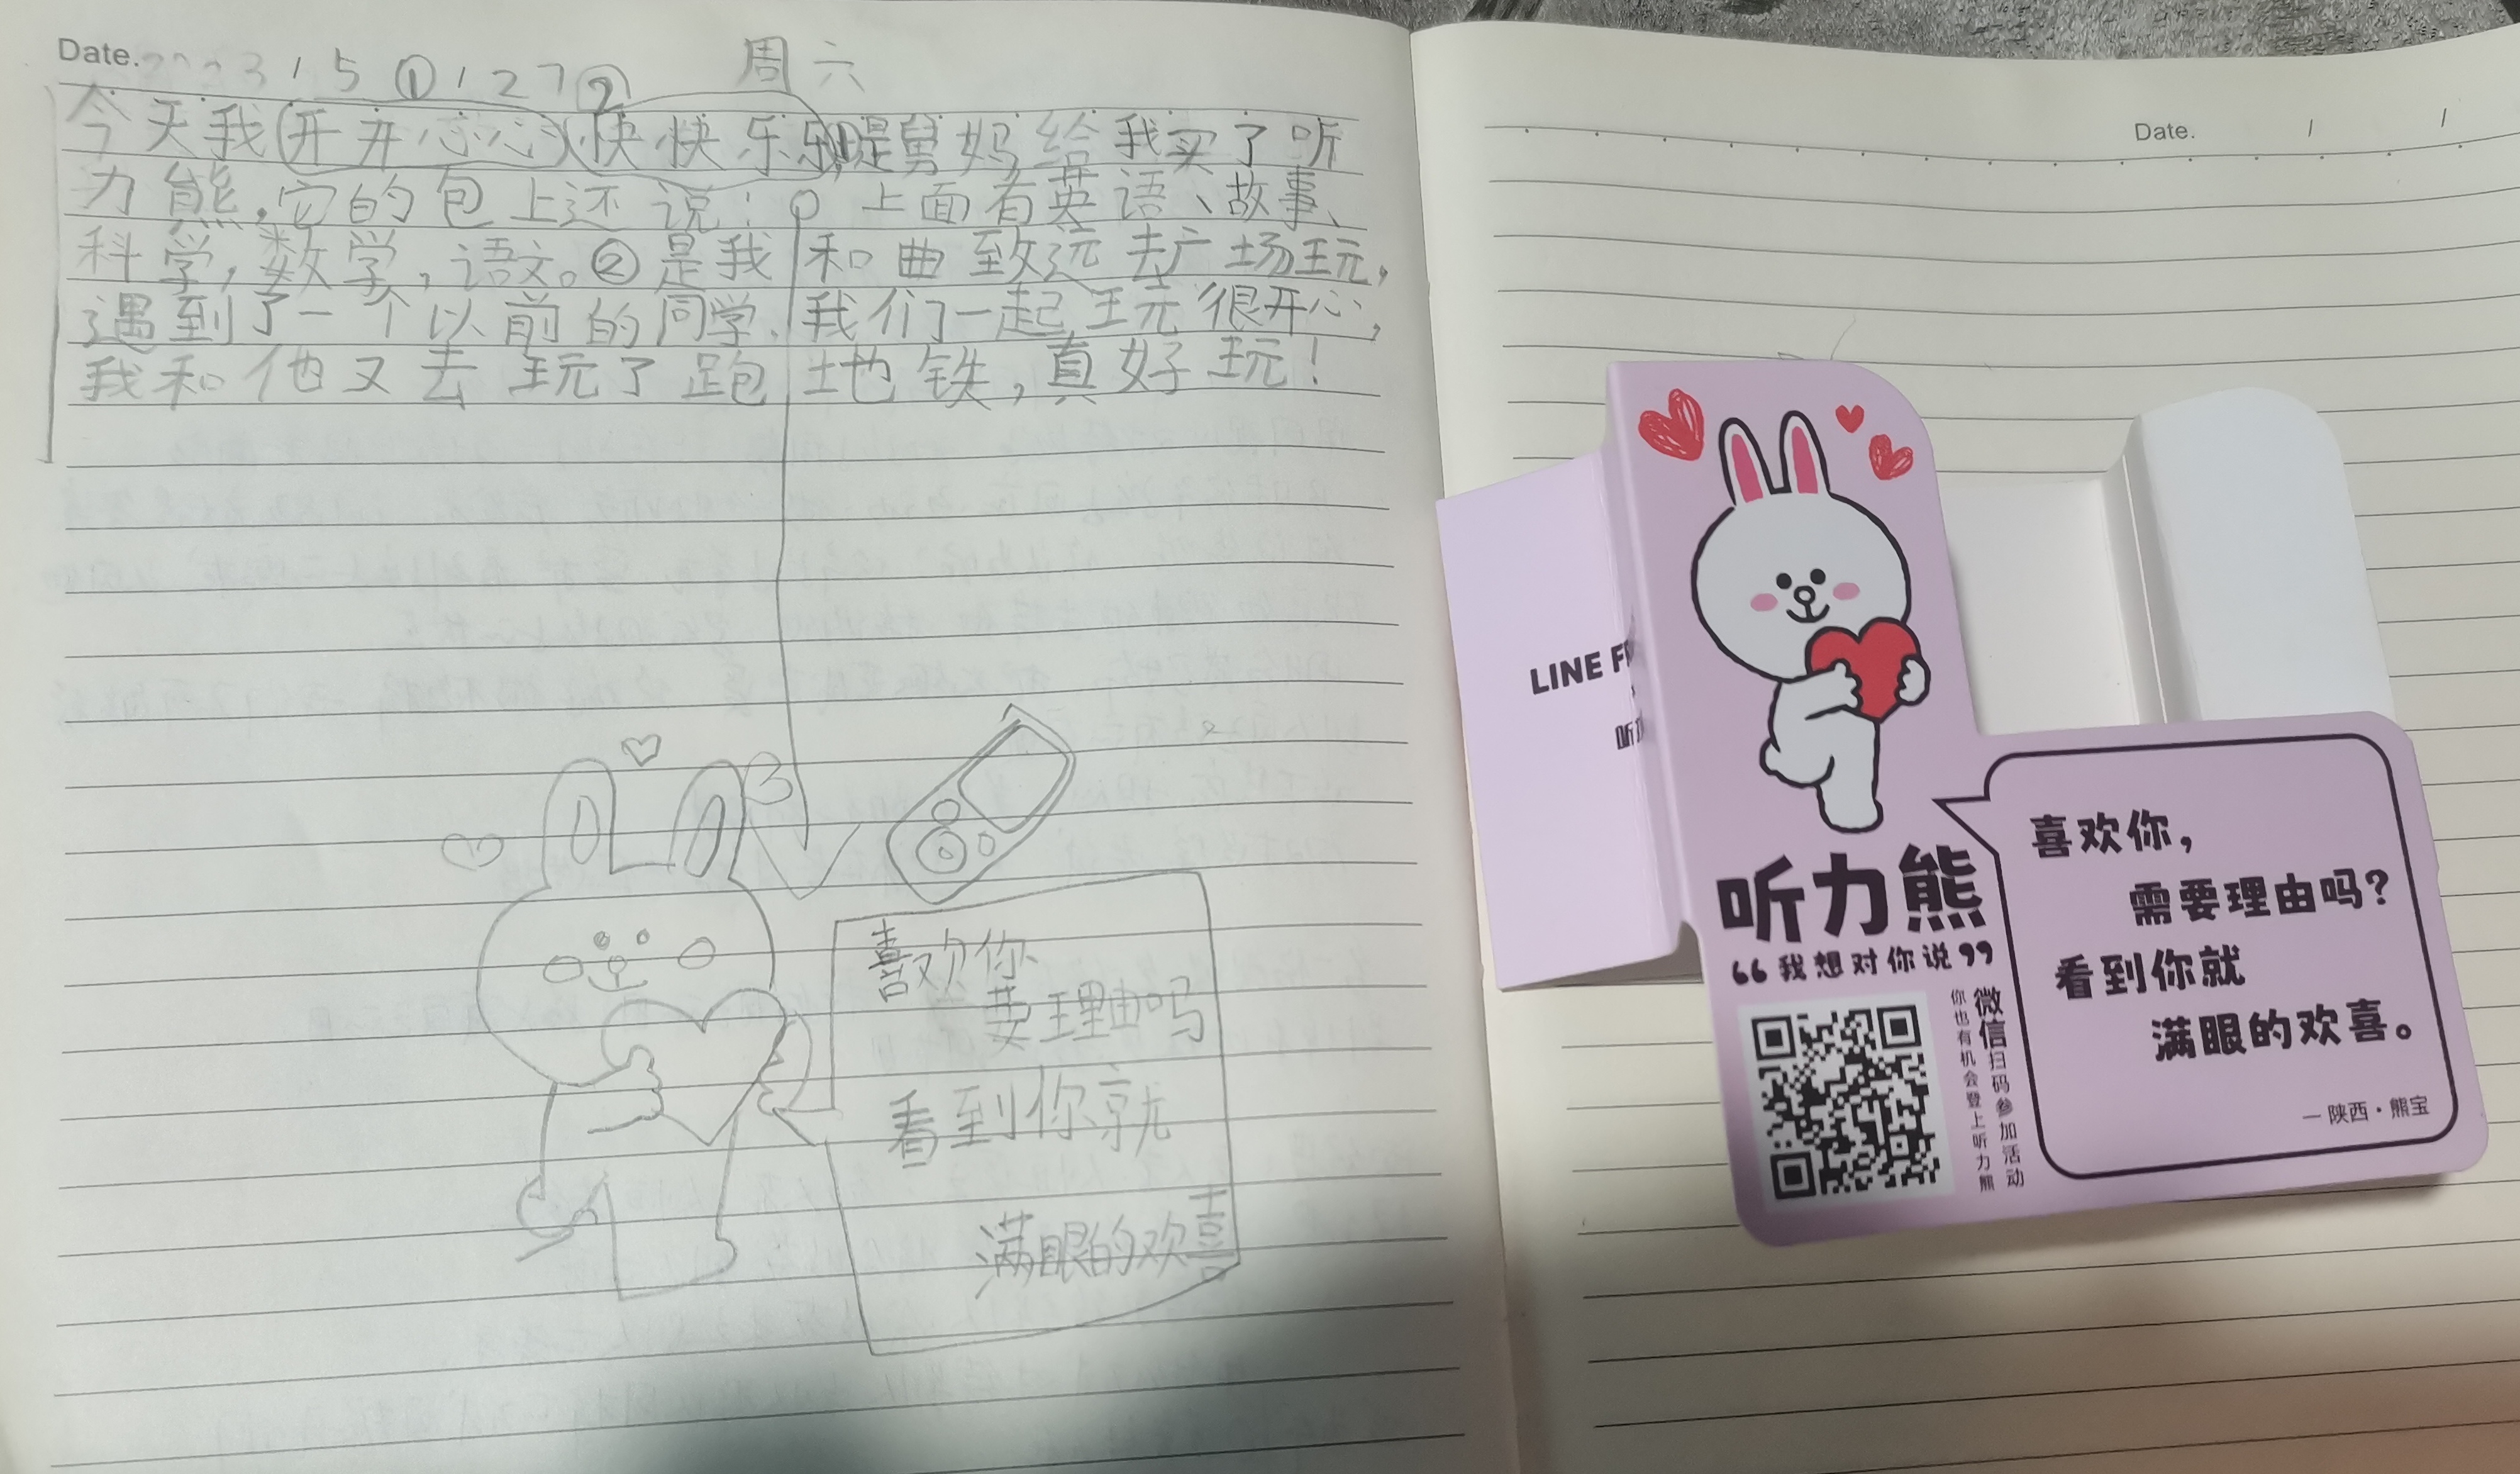 Date. 2023 / 5 ① / 27 ② 周六
今天我开开心心快快乐乐,①是舅妈给我买了听
力熊,它的包上还说: 上面有英语、故事、
科学,数学,语文。②是我和曲致远去广场玩,
遇到了一个以前的同学,我们一起玩很开心,
我和他又去玩了跑地铁,真好玩!
喜欢你
要理由吗
看到你就
满眼的欢喜
Date. / /
LINE
听
听力熊
“我想对你说”
微信扫码参加活动
你也有机会登上听力熊
喜欢你,
需要理由吗?
看到你就
满眼的欢喜。
— 陕西·熊宝